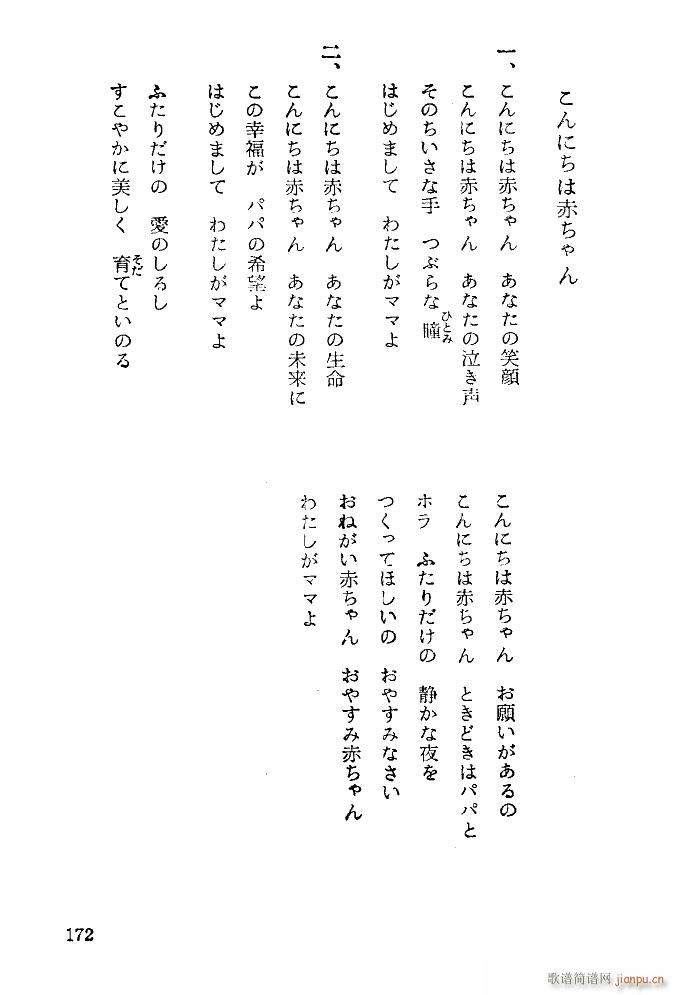 こんにちは赤ちゃん
一、こんにちは赤ちゃん　あなたの笑顔
こんにちは赤ちゃん　あなたの泣き声
そのちいさな手　つぶらな瞳
ひとみ
はじめまして　わたしがママよ
二、こんにちは赤ちゃん　あなたの生命
こんにちは赤ちゃん　あなたの未来に
この幸福が　パパの希望よ
はじめまして　わたしがママよ
ふたりだけの　愛のしるし
すこやかに美しく　育てといのる
そだ
こんにちは赤ちゃん　お願いがあるの
こんにちは赤ちゃん　ときどきはパパと
ホラ　ふたりだけの　静かな夜を
つくってほしいの　おやすみなさい
おねがい赤ちゃん　おやすみ赤ちゃん
わたしがママよ
172
歌谱简谱网
jianpu.cn